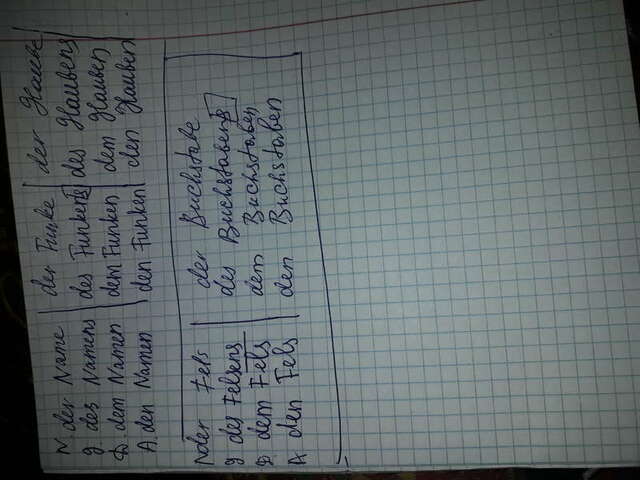 N. der Name | der Funke | der Haube
g. des Namens | des Funkens | des Haubens
D. dem Namen | dem Funken | dem Hauben
A. den Namen | den Funken | den Hauben
N der Fels | der Buchstabe
g des Felsens | des Buchstabens
D. dem Fels | dem Buchstaben
A den Fels | den Buchstaben